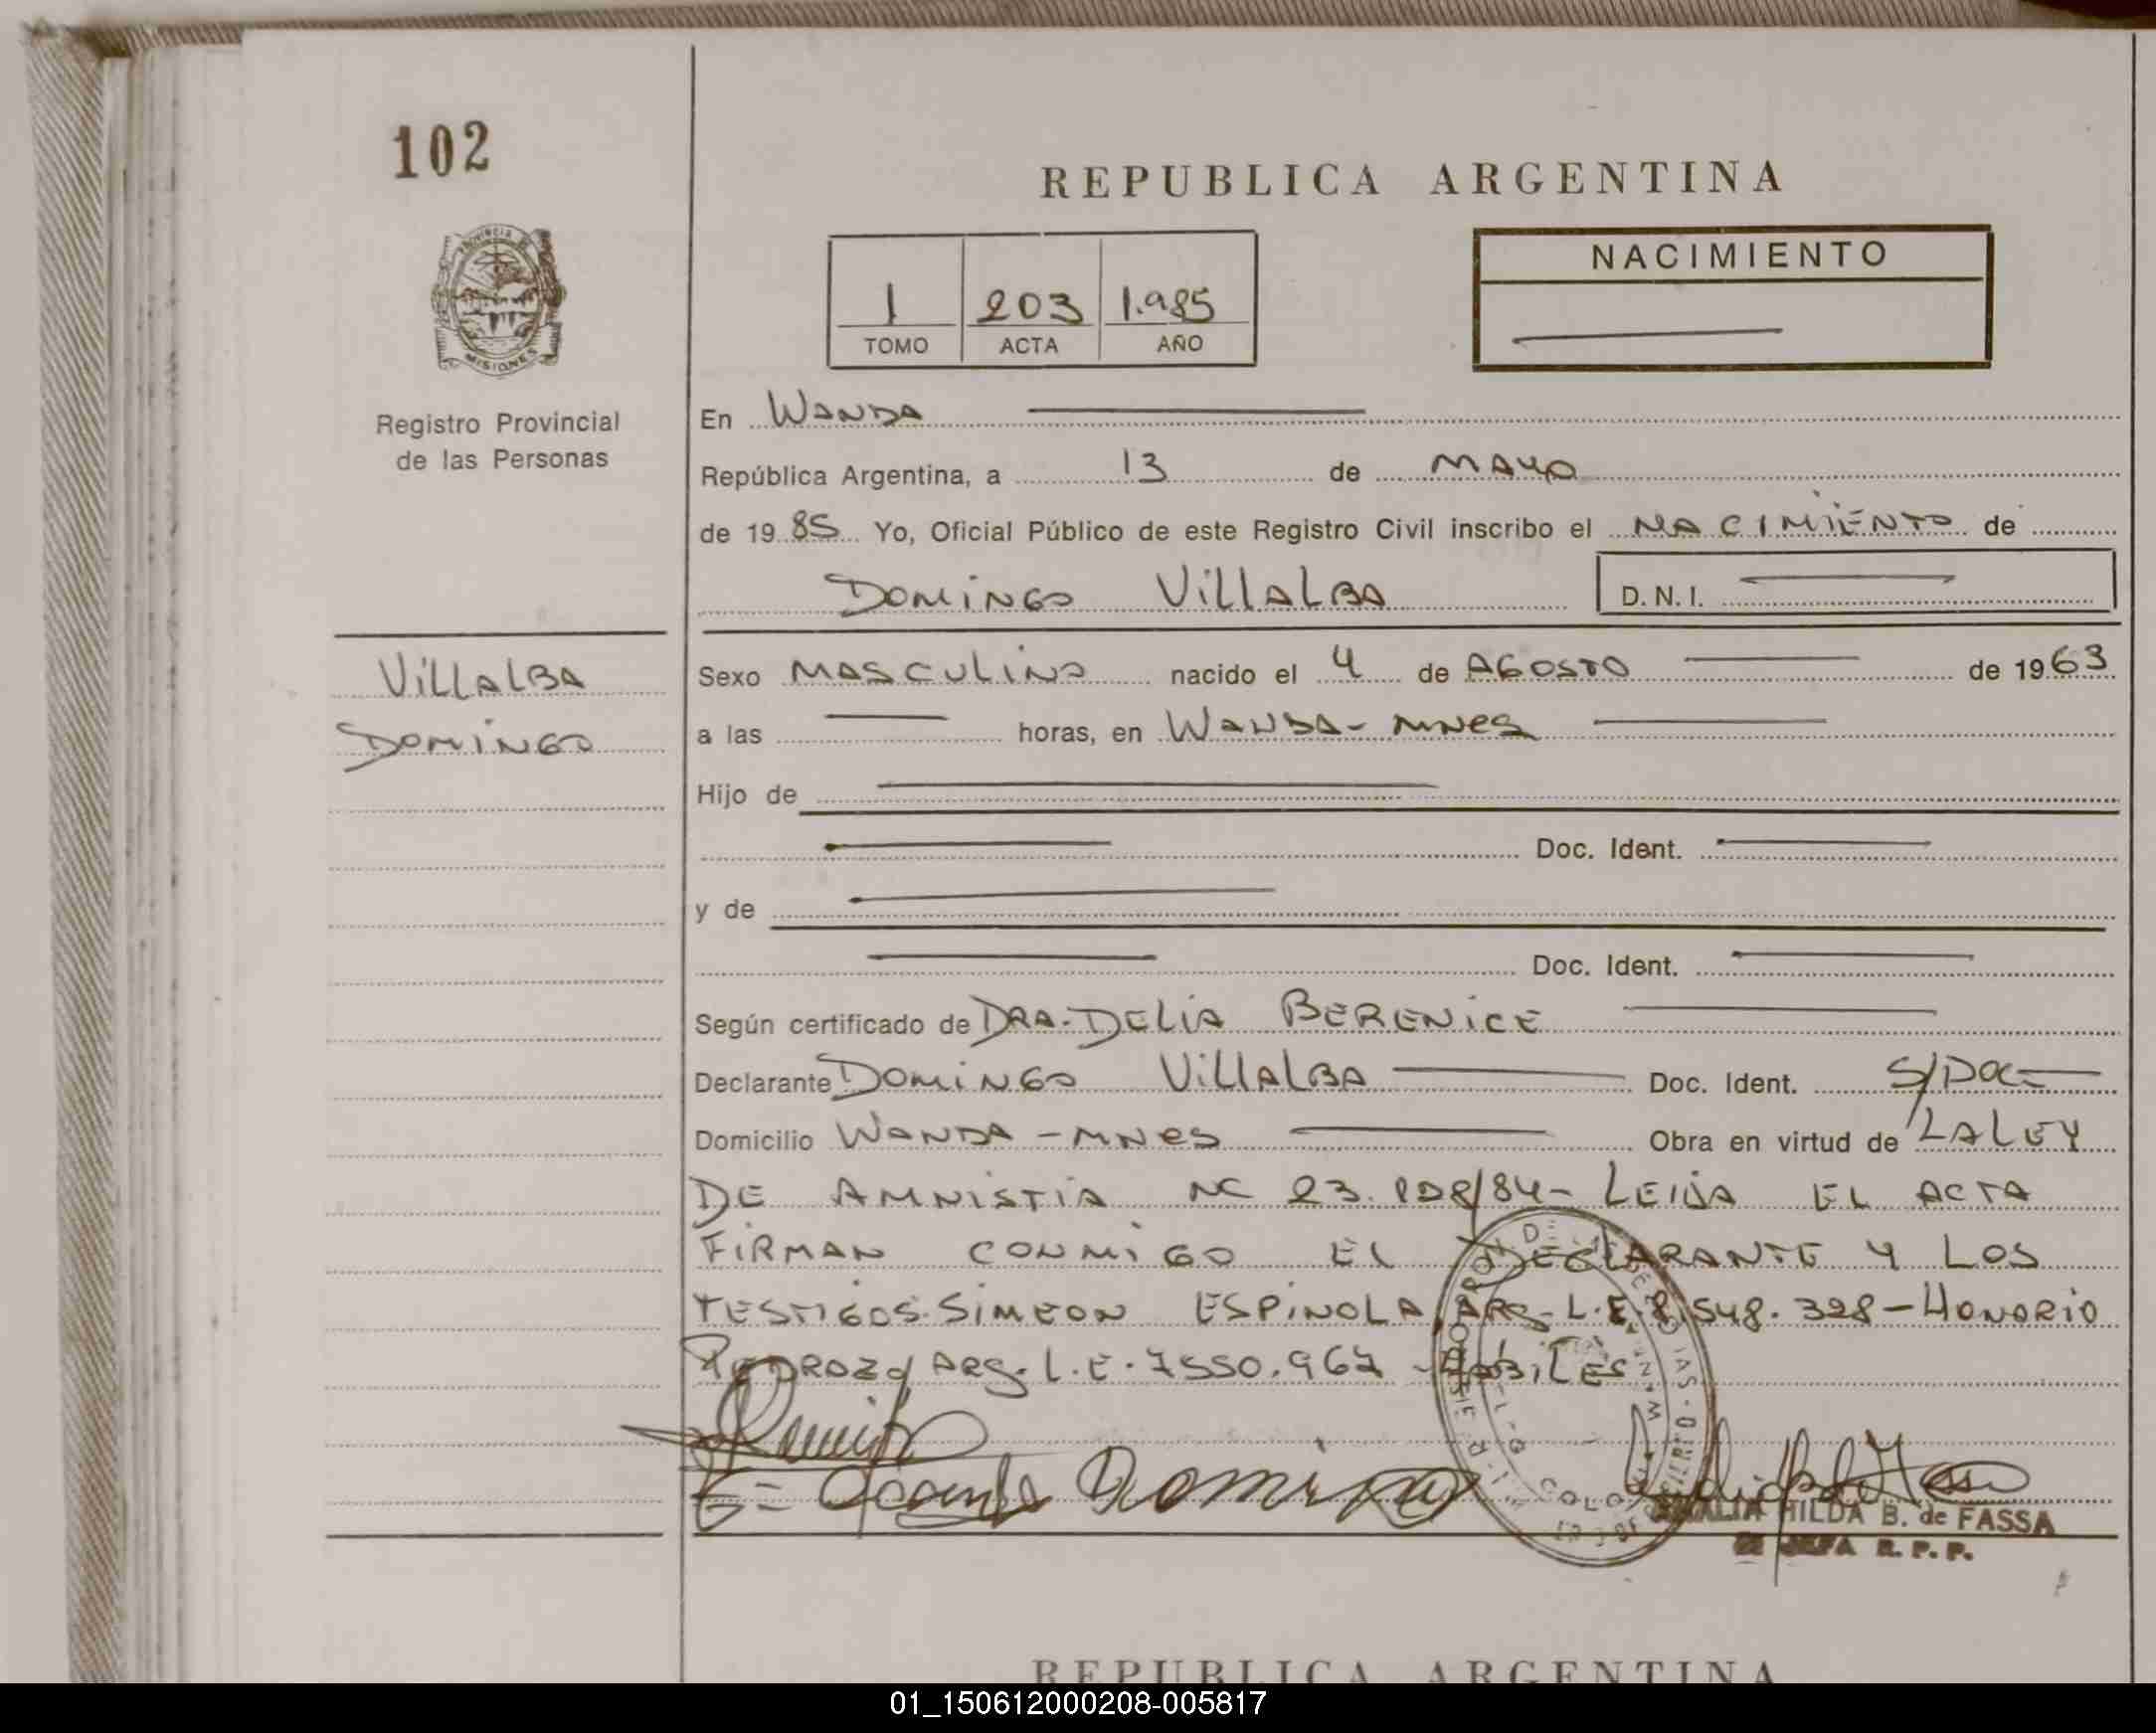 102
REPUBLICA ARGENTINA
PROVINCIA DE
MISIONES
Registro Provincial
de las Personas
1 203 1.985
TOMO ACTA AÑO
NACIMIENTO
En WANDA
República Argentina, a 13 de MAYO
de 1985 Yo, Oficial Público de este Registro Civil inscribo el NACIMIENTO de
DOMINGO VILLALBA D.N.I.
VILLALBA
DOMINGO
Sexo MASCULINO nacido el 4 de AGOSTO de 1963
a las horas, en WANDA - MNES
Hijo de
Doc. Ident.
y de
Doc. Ident.
Según certificado de DRA. DELIA BERENICE
Declarante DOMINGO VILLALBA Doc. Ident. S/DOC
Domicilio WANDA - MNES Obra en virtud de LA LEY
DE AMNISTIA 23. /84 - LEIDA EL ACTA
FIRMAN CONMIGO EL DECLARANTE Y LOS
TESTIGOS. SIMEON ESPINOLA, ARG. L.E. 8.548.328 - HONORIO
PEDROZO ARG. L.E. 7550.967 - HABILES
HILDA B. de FASSA
JEFA R. P. P.
REPUBLICA ARGENTINA
01_150612000208-005817